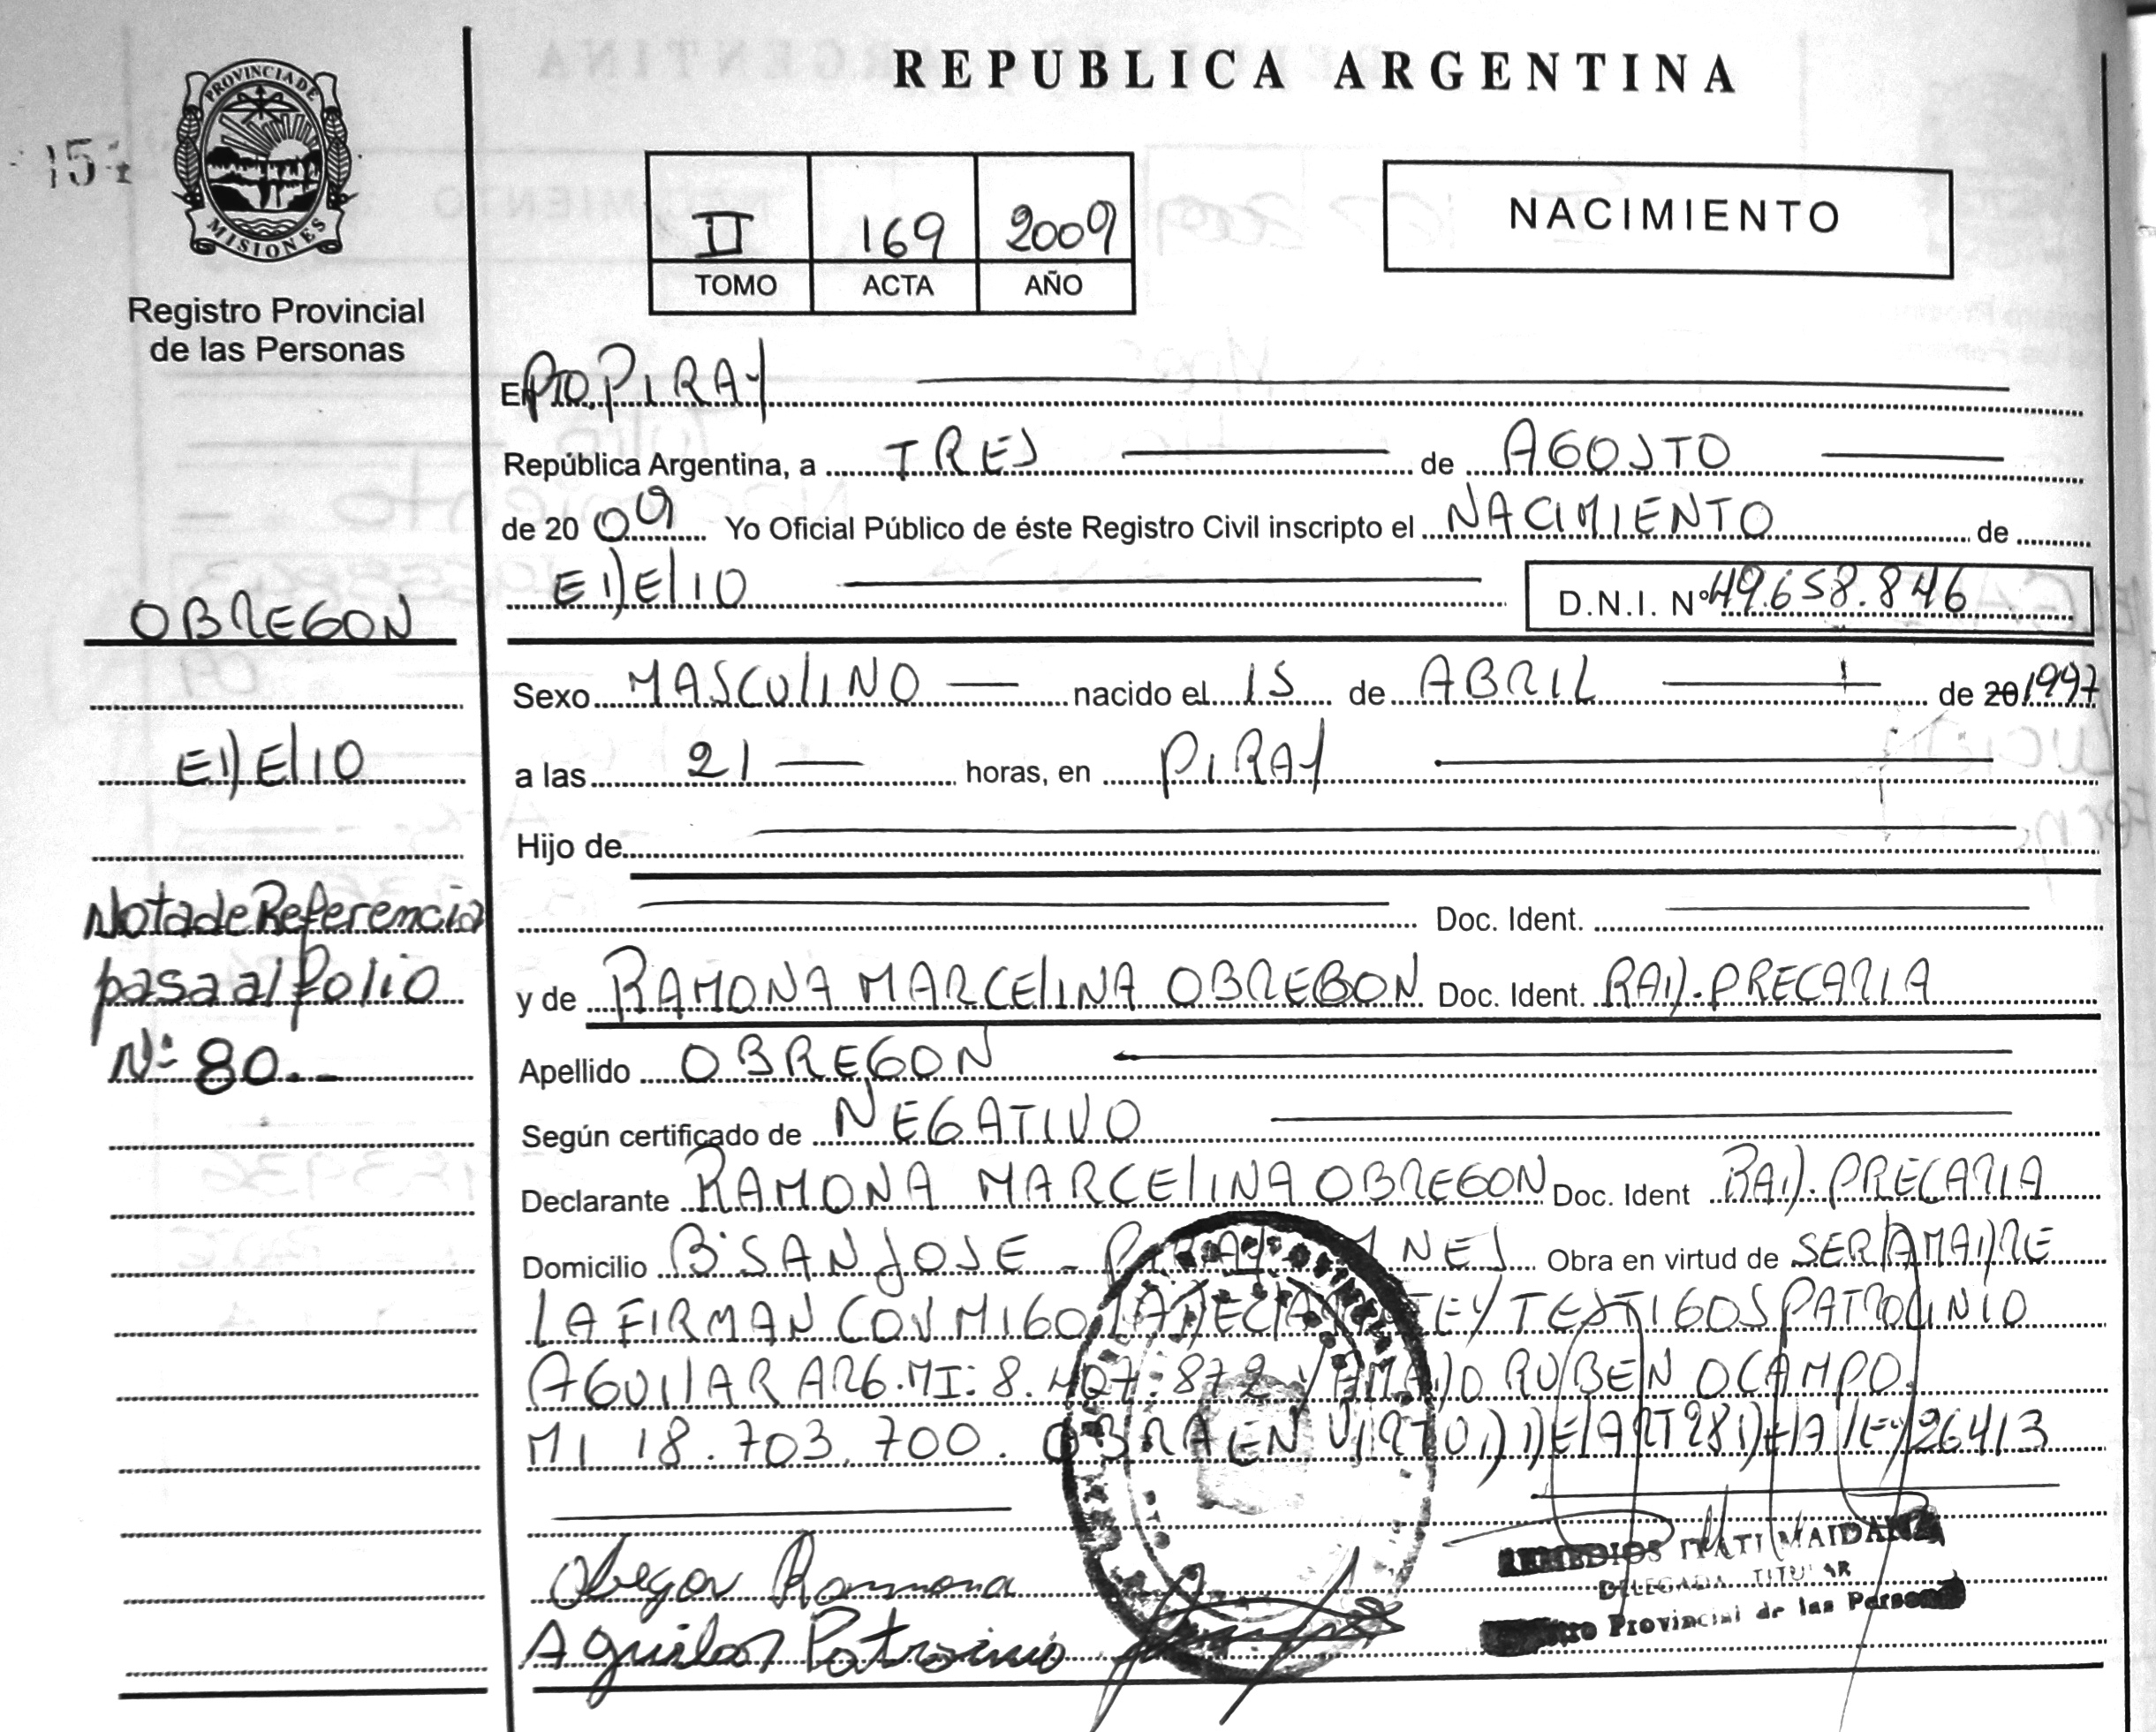 REPUBLICA ARGENTINA
PROVINCIA DE
MISIONES
Registro Provincial
de las Personas
II 169 2009
TOMO ACTA AÑO
NACIMIENTO
En PTO. PIRAY
República Argentina, a TRES de AGOSTO
de 2009 Yo Oficial Público de éste Registro Civil inscripto el NACIMIENTO de
EDELIO D.N.I. Nº 49.658.846
OBREGON
Sexo MASCULINO nacido el 15 de ABRIL de 20 1997
EDELIO
a las 21 horas, en PIRAY
Hijo de
Nota de Referencia
Doc. Ident.
pasa al folio
y de RAMONA MARCELINA OBREGON Doc. Ident. RAD. PRECARIA
Nº 80.
Apellido OBREGON
Según certificado de NEGATIVO
Declarante RAMONA MARCELINA OBREGON Doc. Ident RAD. PRECARIA
Domicilio Bº SAN JOSE - PIRAY Obra en virtud de SER LA MADRE
LA FIRMAN CONMIGO LA DECLARANTE Y TESTIGOS PATROCINIO
AGUILAR ARG. MI: 8.407.872 Y AMADO RUBEN OCAMPO
MI 18.703.700. OBRA EN VIRTUD DEL ART 28 DE LA LEY 26413
Obregon Ramona
Aguilar Patrocinio
REMEDIOS ITATI MAIDANA
DELEGADA TITULAR
Registro Provincial de las Personas